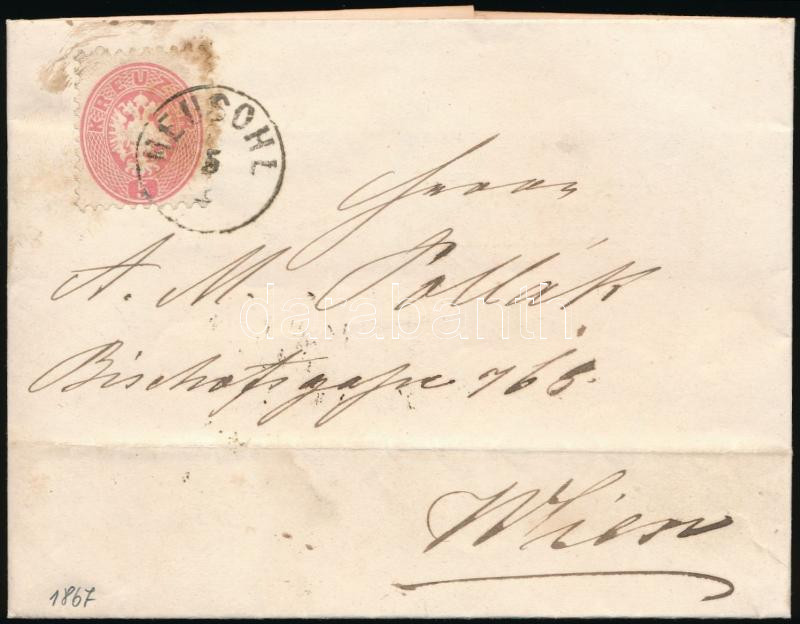 KREUZ
NEUSOHL
5
Herrn
A. M. Pollák
darabanth
Bischofsgasse 768.
Wien
1867